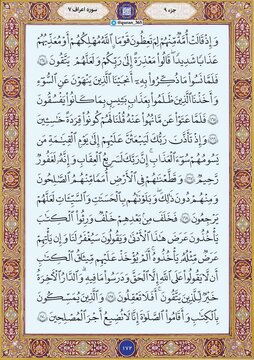 جزء ۹
@quran_365
سوره اعراف ۷
وَ إِذ قالَت أُمَّةٌ مِنهُم لِمَ تَعِظونَ قَومًا اللَّهُ مُهلِكُهُم أَو مُعَذِّبُهُم
عَذابًا شَديدًا قالوا مَعذِرَةً إِلىٰ رَبِّكُم وَ لَعَلَّهُم يَتَّقونَ ﴿۱۶۴﴾
فَلَمّا نَسوا ما ذُكِّروا بِهِ أَنجَينَا الَّذينَ يَنهَونَ عَنِ السّوءِ
وَ أَخَذنَا الَّذينَ ظَلَموا بِعَذابٍ بَئيسٍ بِما كانوا يَفسُقونَ
﴿۱۶۵﴾ فَلَمّا عَتَوا عَن ما نُهوا عَنهُ قُلنا لَهُم كونوا قِرَدَةً خاسِئينَ
﴿۱۶۶﴾ وَ إِذ تَأَذَّنَ رَبُّكَ لَيَبعَثَنَّ عَلَيهِم إِلىٰ يَومِ القِيٰمَةِ مَن
يَسومُهُم سوءَ العَذابِ إِنَّ رَبَّكَ لَسَريعُ العِقابِ وَ إِنَّهُ لَغَفورٌ
رَحيمٌ ﴿۱۶۷﴾ وَ قَطَّعناهُم فِي الأَرضِ أُمَمًا مِنهُمُ الصّالِحونَ
وَ مِنهُم دونَ ذٰلِكَ وَ بَلَوناهُم بِالحَسَناتِ وَ السَّيِّئاتِ لَعَلَّهُم
يَرجِعونَ ﴿۱۶۸﴾ فَخَلَفَ مِن بَعدِهِم خَلفٌ وَرِثُوا الكِتٰبَ
يَأخُذونَ عَرَضَ هٰذَا الأَدنىٰ وَ يَقولونَ سَيُغفَرُ لَنا وَ إِن يَأتِهِم
عَرَضٌ مِثلُهُ يَأخُذوهُ أَلَم يُؤخَذ عَلَيهِم ميثاقُ الكِتٰبِ
أَن لا يَقولوا عَلَى اللَّهِ إِلَّا الحَقَّ وَ دَرَسوا ما فيهِ وَ الدّارُ الآخِرَةُ
خَيرٌ لِلَّذينَ يَتَّقونَ أَفَلا تَعقِلونَ ﴿۱۶۹﴾ وَ الَّذينَ يُمَسِّكونَ
بِالكِتٰبِ وَ أَقامُوا الصَّلوٰةَ إِنّا لا نُضيعُ أَجرَ المُصلِحينَ ﴿۱۷۰﴾
۱۷۲